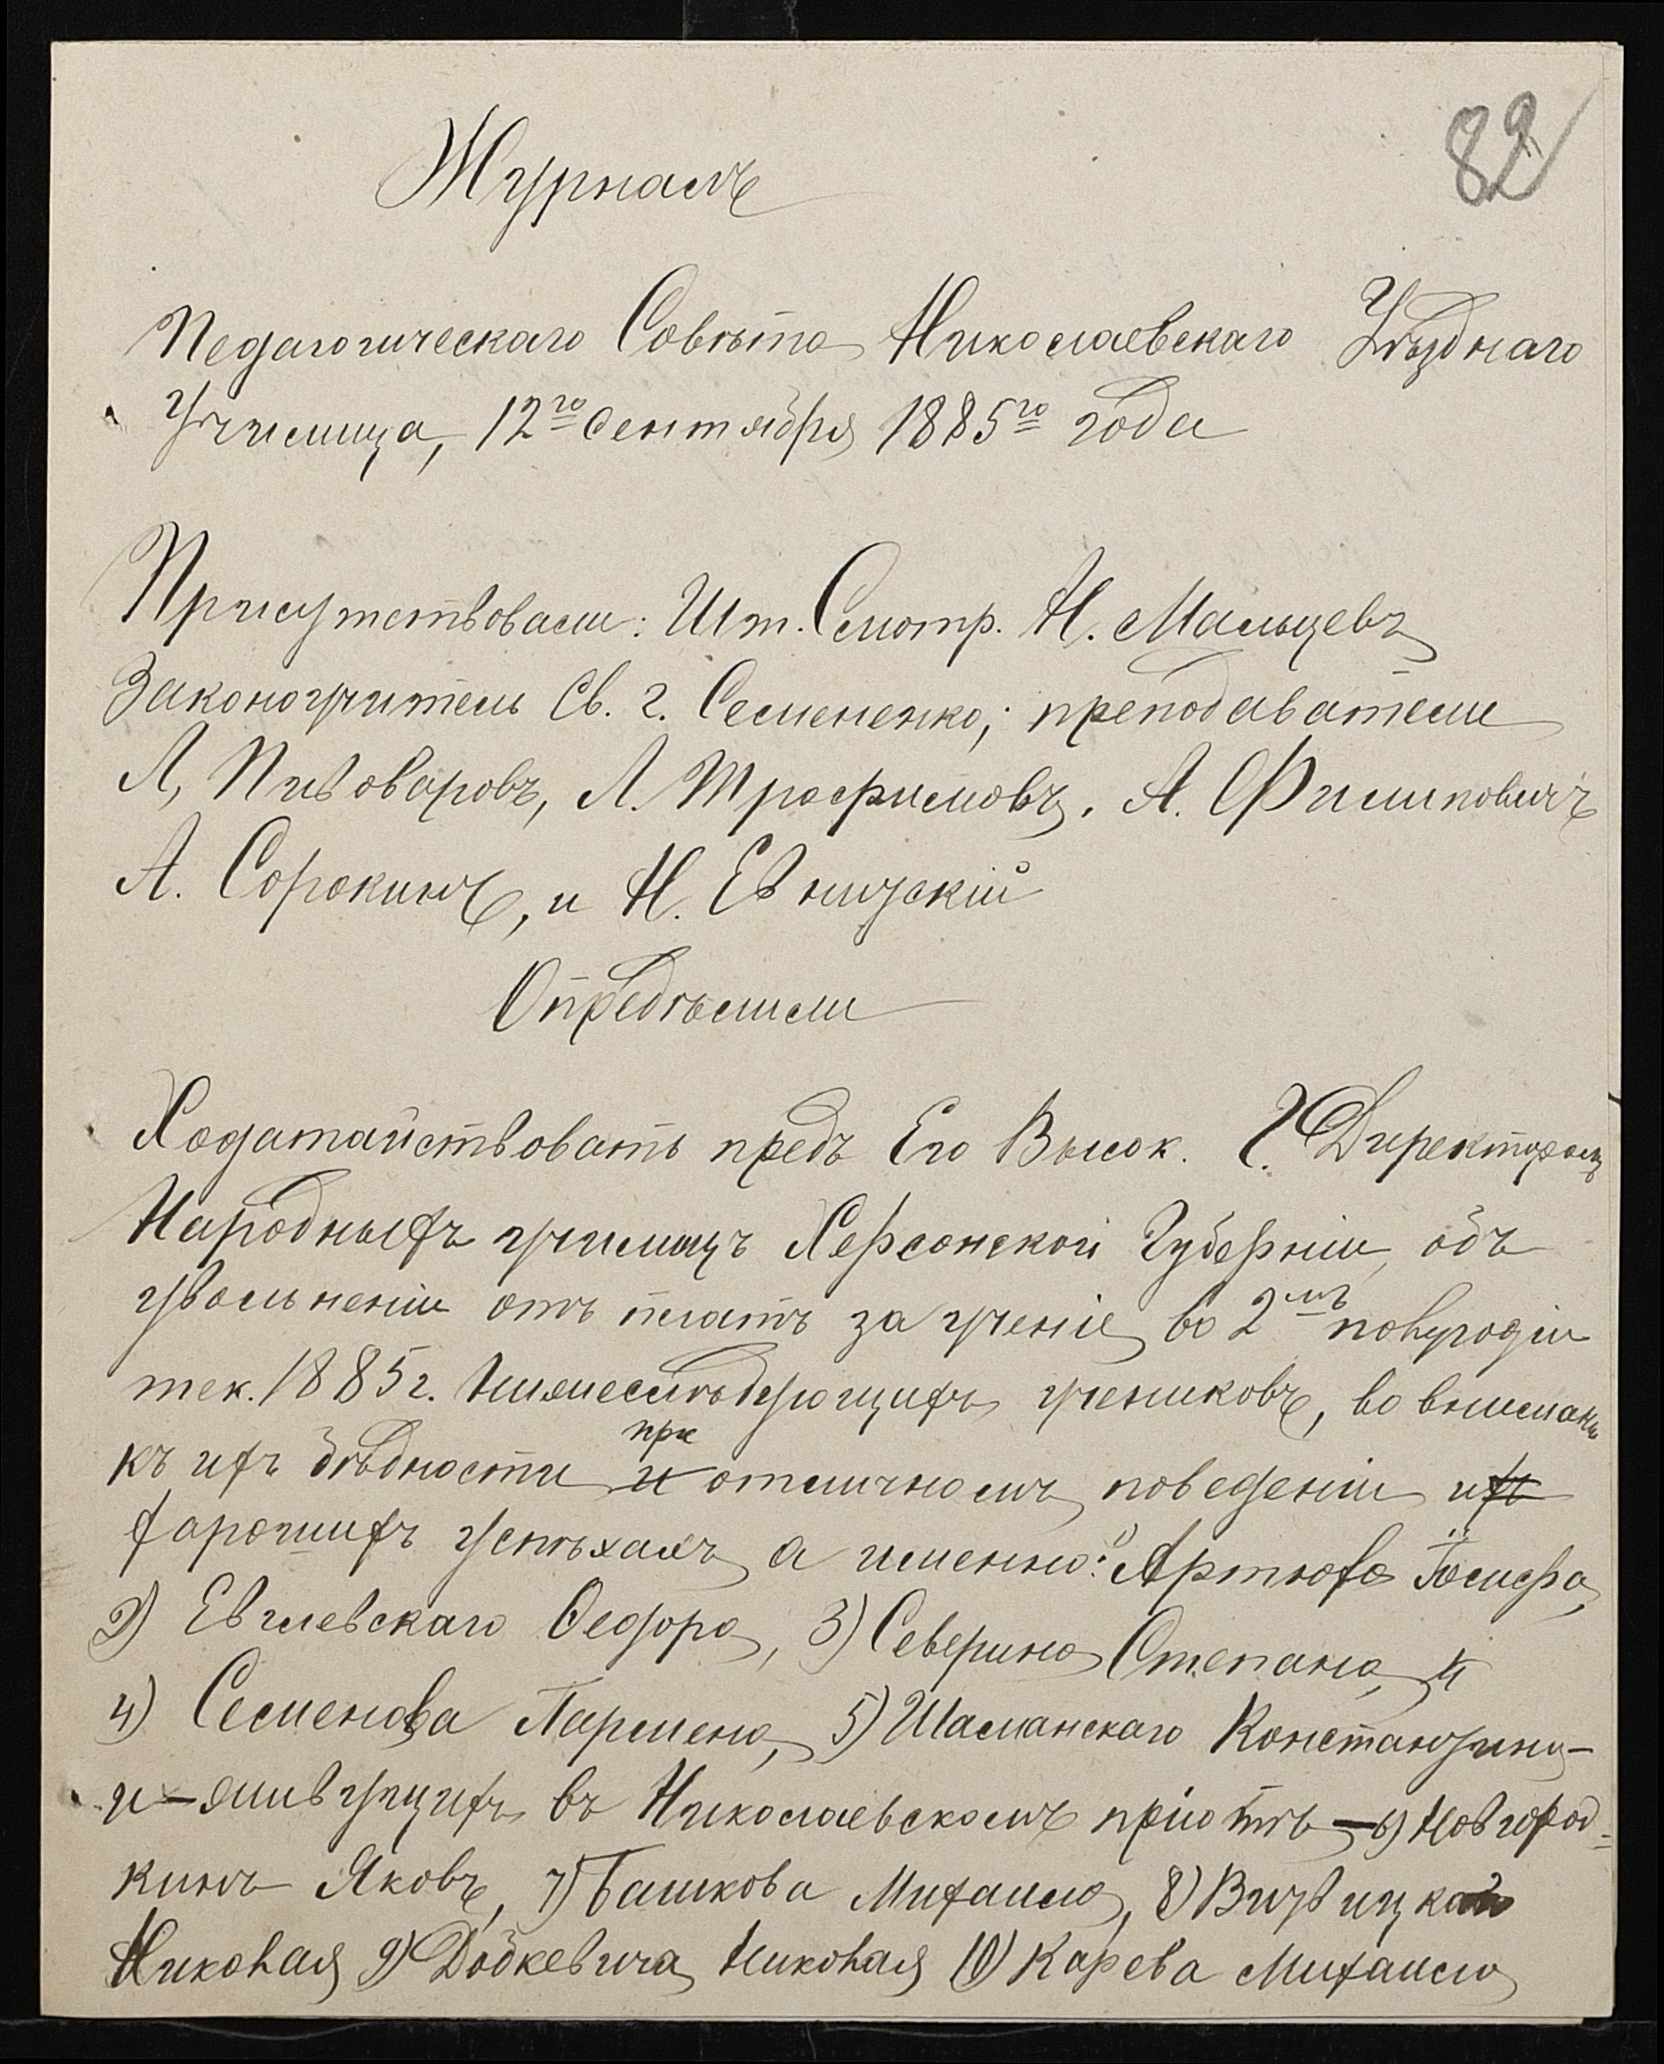 82
Журналъ
Педагогическаго Совѣта Николаевскаго Уѣзднаго
Училища, 12го Сентября 1885го года
Присутствовали: Шт. Смотр. Н. Мальцевъ
Законоучитель Св. Г. Семененко; преподаватели
Л. Пивоваровъ, Л. Трофимовъ, А. Филиповичъ
А. Сорокинъ, и Н. Евницкій
Опредѣлили
Ходатайствовать предъ Его Высок. Г. Директоромъ
Народныхъ училищъ Херсонской Губерніи, объ
увольненіи отъ платы за ученіе во 2мъ полугодіи
тек. 1885 г. нижеслѣдующихъ учениковъ, во вниманіи
къ ихъ бѣдности при отличномъ поведеніи и
хорошихъ успѣхахъ а именно: 1) Артюха Іосифа,
2) Евчевскаго Ѳедора, 3) Северина Степана, и
4) Семенова Пармена, 5) Шаманскаго Константина –
и – живущихъ въ Николаевскомъ пріютѣ – 6) Новгород-
кинъ Яковъ, 7) Башкова Михаила, 8)
Николая 9) Добкевича Николая 10) Карева Михаила